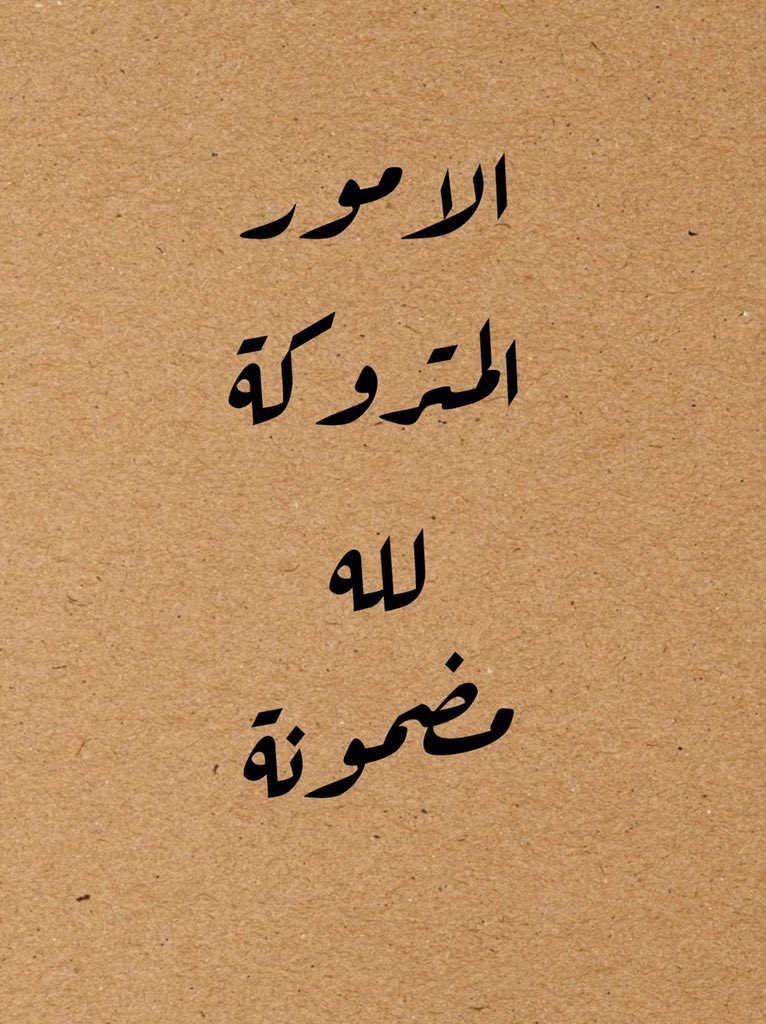 الامور
المتروكة
لله
مضمونة